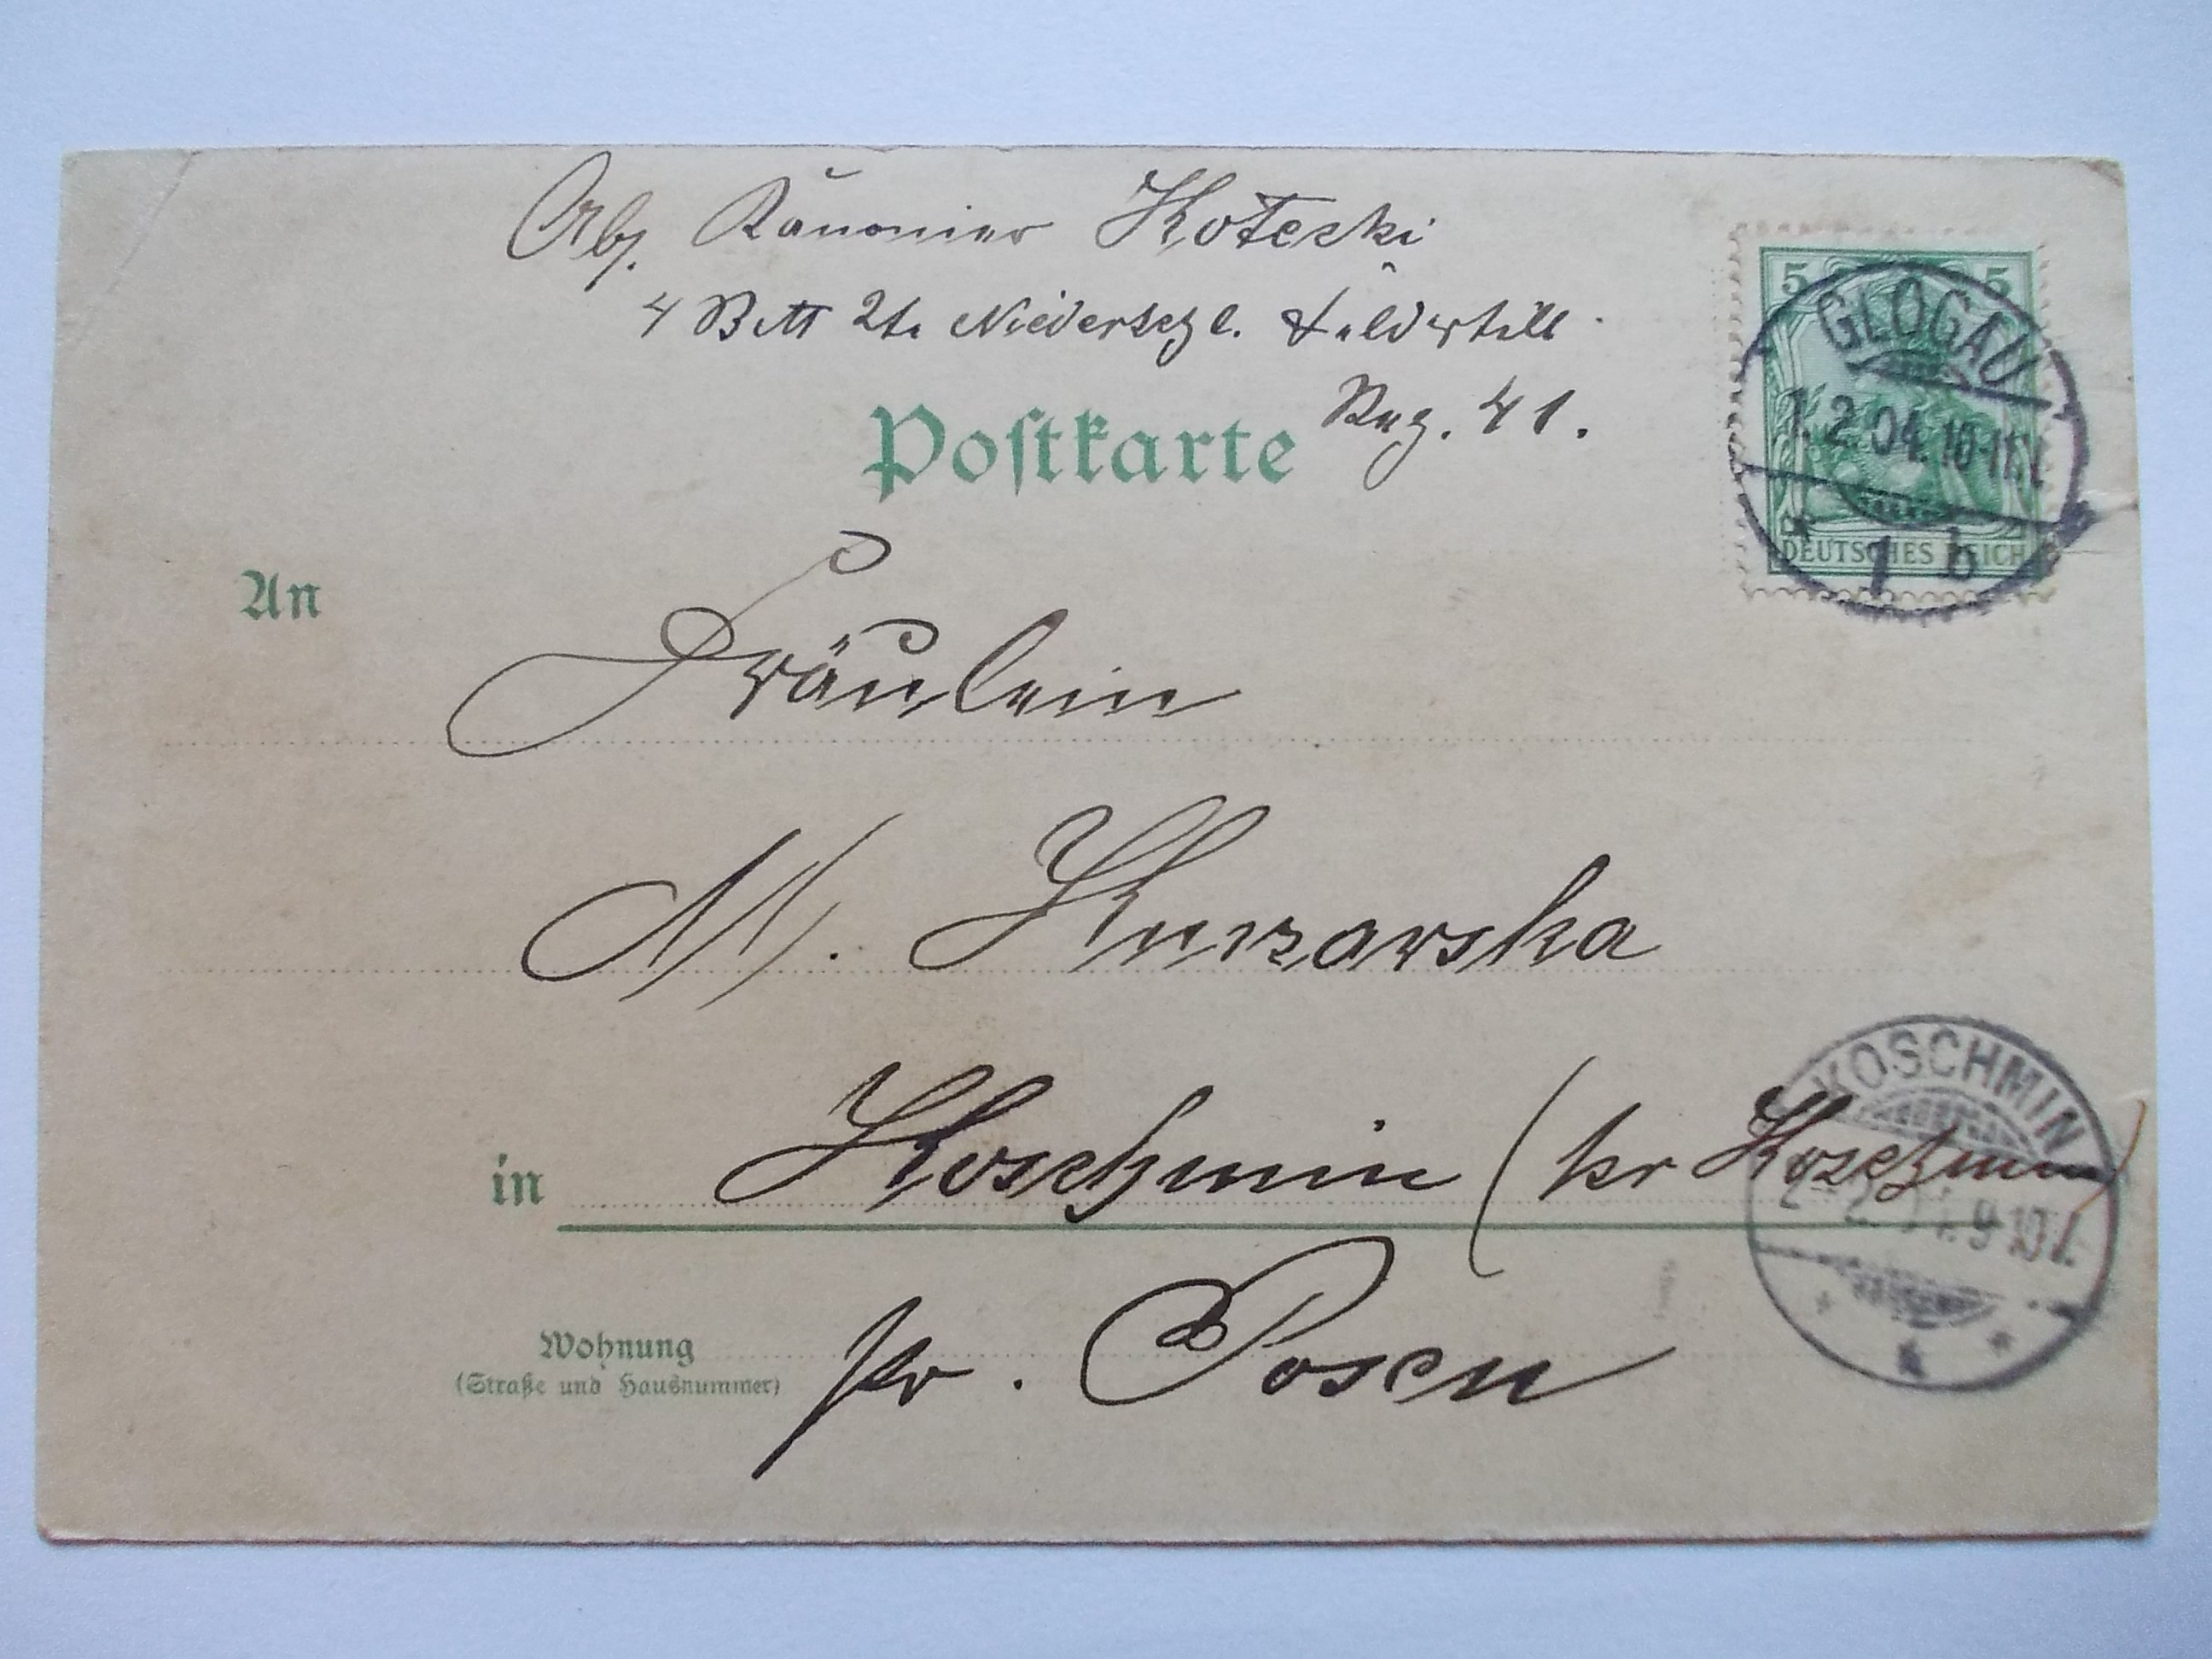 Abs. Kanonier Koteski
4 Batt 2te Niederschl. Feldartill.
Reg. 41.
Postkarte
5 5
GLOGAU
1.2.04.10-11V.
* 1 b
DEUTSCHES REICH
An
Fräulein
M. Kurzawska
in Koschmin (kr Koschmin)
KOSCHMIN
9-10V.
Wohnung
(Straße und Hausnummer)
pr. Posen